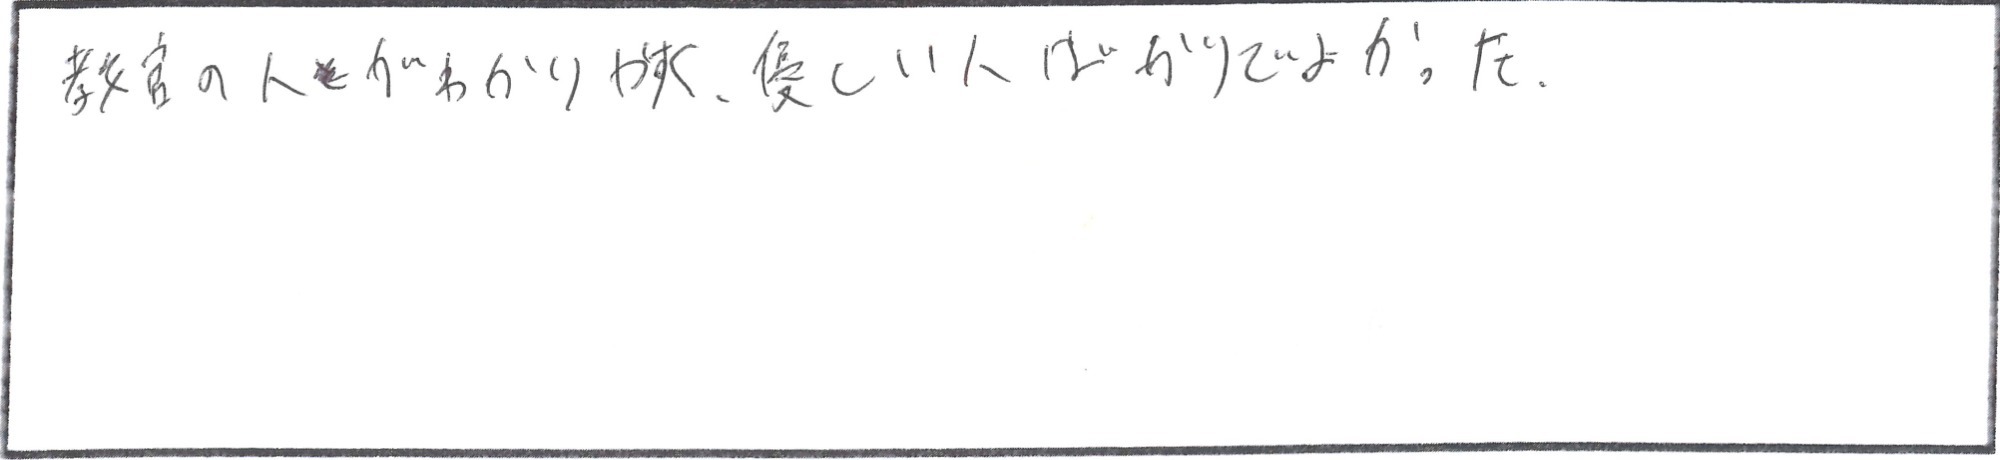 教官の人がわかりやすく、優しい人ばかりでよかった。